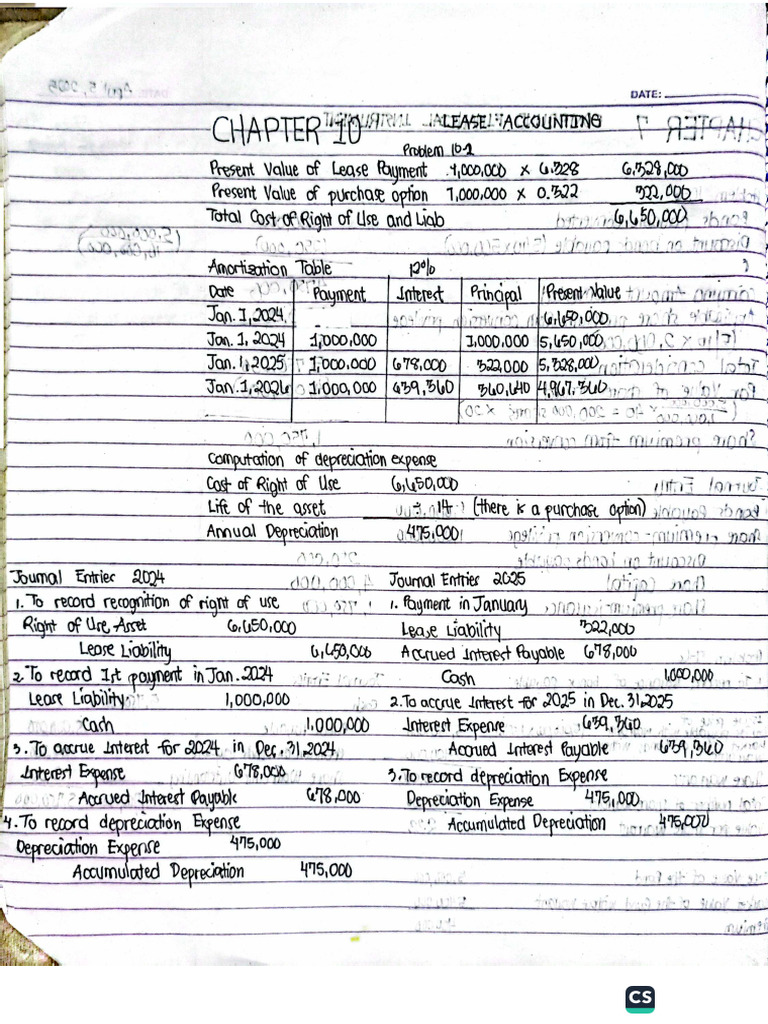 DATE:
CHAPTER 10 LEASE ACCOUNTING
Problem 10-2
Present Value of Lease Payment 1,000,000 x 6.328 6,328,000
Present Value of purchase option 1,000,000 x 0.322 322,000
Total Cost of Right of Use and Liab 6,650,000
Amortization Table 12%
Date Payment Interest Principal Present Value
Jan. 1, 2024 6,650,000
Jan. 1, 2024 1,000,000 1,000,000 5,650,000
Jan. 1, 2025 1,000,000 678,000 322,000 5,328,000
Jan. 1, 2026 1,000,000 639,360 360,640 4,967,360
Computation of depreciation expense
Cost of Right of Use 6,650,000
Life of the asset ÷ 14 (there is a purchase option)
Annual Depreciation 475,000
Journal Entries 2024
1. To record recognition of right of use
Right of Use Asset 6,650,000
Lease Liability 6,650,000
2. To record 1st payment in Jan. 2024
Lease Liability 1,000,000
Cash 1,000,000
3. To accrue Interest for 2024 in Dec. 31, 2024
Interest Expense 678,000
Accrued Interest Payable 678,000
4. To record depreciation Expense
Depreciation Expense 475,000
Accumulated Depreciation 475,000
Journal Entries 2025
1. Payment in January
Lease Liability 322,000
Accrued Interest Payable 678,000
Cash 1,000,000
2. To accrue Interest for 2025 in Dec. 31, 2025
Interest Expense 639,360
Accrued Interest Payable 639,360
3. To record depreciation Expense
Depreciation Expense 475,000
Accumulated Depreciation 475,000
CS